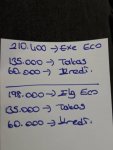 210.400 → Exe Eco
135.000 → Takas
60.000 → Kredi.
198.000 → Elg Eco
135.000 → Takas
60.000 → Kredi.